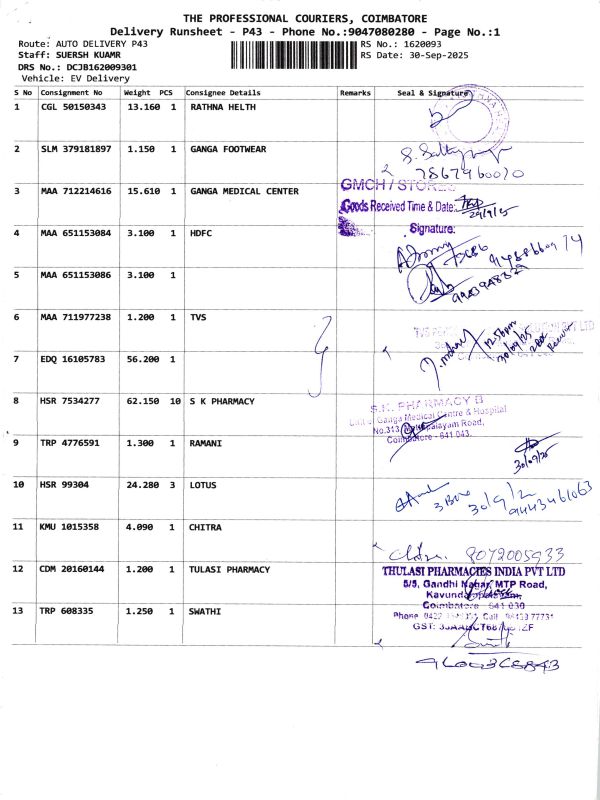 THE PROFESSIONAL COURIERS, COIMBATORE
Delivery Runsheet - P43 - Phone No.:9047080280 - Page No.:1
Route: AUTO DELIVERY P43
RS No.: 1620093
Staff: SUERSH KUAMR
RS Date: 30-Sep-2025
DRS No.: DCJB162009301
Vehicle: EV Delivery
S No Consignment No Weight PCS Consignee Details Remarks Seal & Signature
1 CGL 50150343 13.160 1 RATHNA HELTH
2 SLM 379181897 1.150 1 GANGA FOOTWEAR
7867460020
3 MAA 712214616 15.610 1 GANGA MEDICAL CENTER
GMCH / STORES
Goods Received Time & Date:
29/9/25
Signature:
4 MAA 651153084 3.100 1 HDFC
5 MAA 651153086 3.100 1
6 MAA 711977238 1.200 1 TVS
12.56pm
30/09/25
7 EDQ 16105783 56.200 1
8 HSR 7534277 62.150 10 S K PHARMACY
S.K. PHARMACY B
Unit of Ganga Medical Centre & Hospital
No.313, Mettupalayam Road,
Coimbatore - 641 043.
9 TRP 4776591 1.300 1 RAMANI
30/09/25
10 HSR 99304 24.280 3 LOTUS
3 Box 30/9/2 9443461063
11 KMU 1015358 4.090 1 CHITRA
9072005933
12 CDM 20160144 1.200 1 TULASI PHARMACY
THULASI PHARMACIES INDIA PVT LTD
5/5, Gandhi Nagar, MTP Road,
Kavundampalayam,
Coimbatore - 641 030
13 TRP 608335 1.250 1 SWATHI